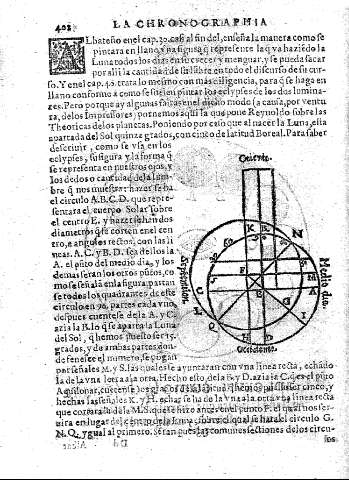 402 LA CHRONOGRAPHIA
Albateño en el cap. 30. casi al fin del, enseña la manera como se
pintara en llano, vna figura q̃ represente la q̃ va haziẽdo la
Luna todos los dias en su crecer y menguar, y se pueda sacar
por alli la cantidad de su lũbre en todo el discurso de su cur-
so. Y en el cap. 42. trata lo mesmo con mas diligencia, para q̃ se haga en
llano conforme a como se suelen pintar los eclypses de los dos lumina-
res. Pero porque ay algunas faltas en el dicho modo (a causa, por ventu
ra, de los Impressores) pornemos aqui la que pone Reynoldo sobre las
Theoricas de los planetas. Poniendo por caso que al nacer la Luna, esta
apartada del Sol quinze grados, con cinco de latitud Boreal. Para saber
describir, como se via en los
eclypses, su figura y la forma q̃
se representa en nuestros ojos, y
los dedos o cantidad de la lum-
bre q̃ nos muestra: hazer se ha
el circulo A.B.C.D. que repre-
sentara el cuerpo Solar sobre
el centro E. y hazer se han dos
diametros q̃ se corten en el cen-
tro, a angulos rectos, con las li-
neas. A.C. y B.D. sea dellos la
A. el pũto del medio dia, y los
demas seran los otros pũtos, co
mo se señala en la figura, partan
se todos los quadrantes de este
circulo en 90. partes cada vno,
despues cuentese de la A. y C.
azia la B. lo q̃ se aparta la Luna
del Sol, q̃ hemos puesto ser 15.
grados, y de ambas partes don-
de fenesce el numero, se pongan
por señales M. y S. las quales se ayuntaran con vna linea recta, echada
de la vna letra a la otra. Hecho esto, de la B. y D. azia la C. q̃ es el pũto
Aquilonar, cuentese los grados de la latitud q̃ hemos puesto ser cinco, y
hechas las señales K. y H. echar se ha de la vna a la otra vna linea recta
que cortara a la M.S. que se hizo antes en el punto F. el qual nos ser-
uira en lugar de centro
N.Q. ygual al primero. Seran pues las comunes sectiones de los circu-
los
Oriente.
Medio dia.
Occidente.
Septentrion.
K B N M A I D H Q L C F E G